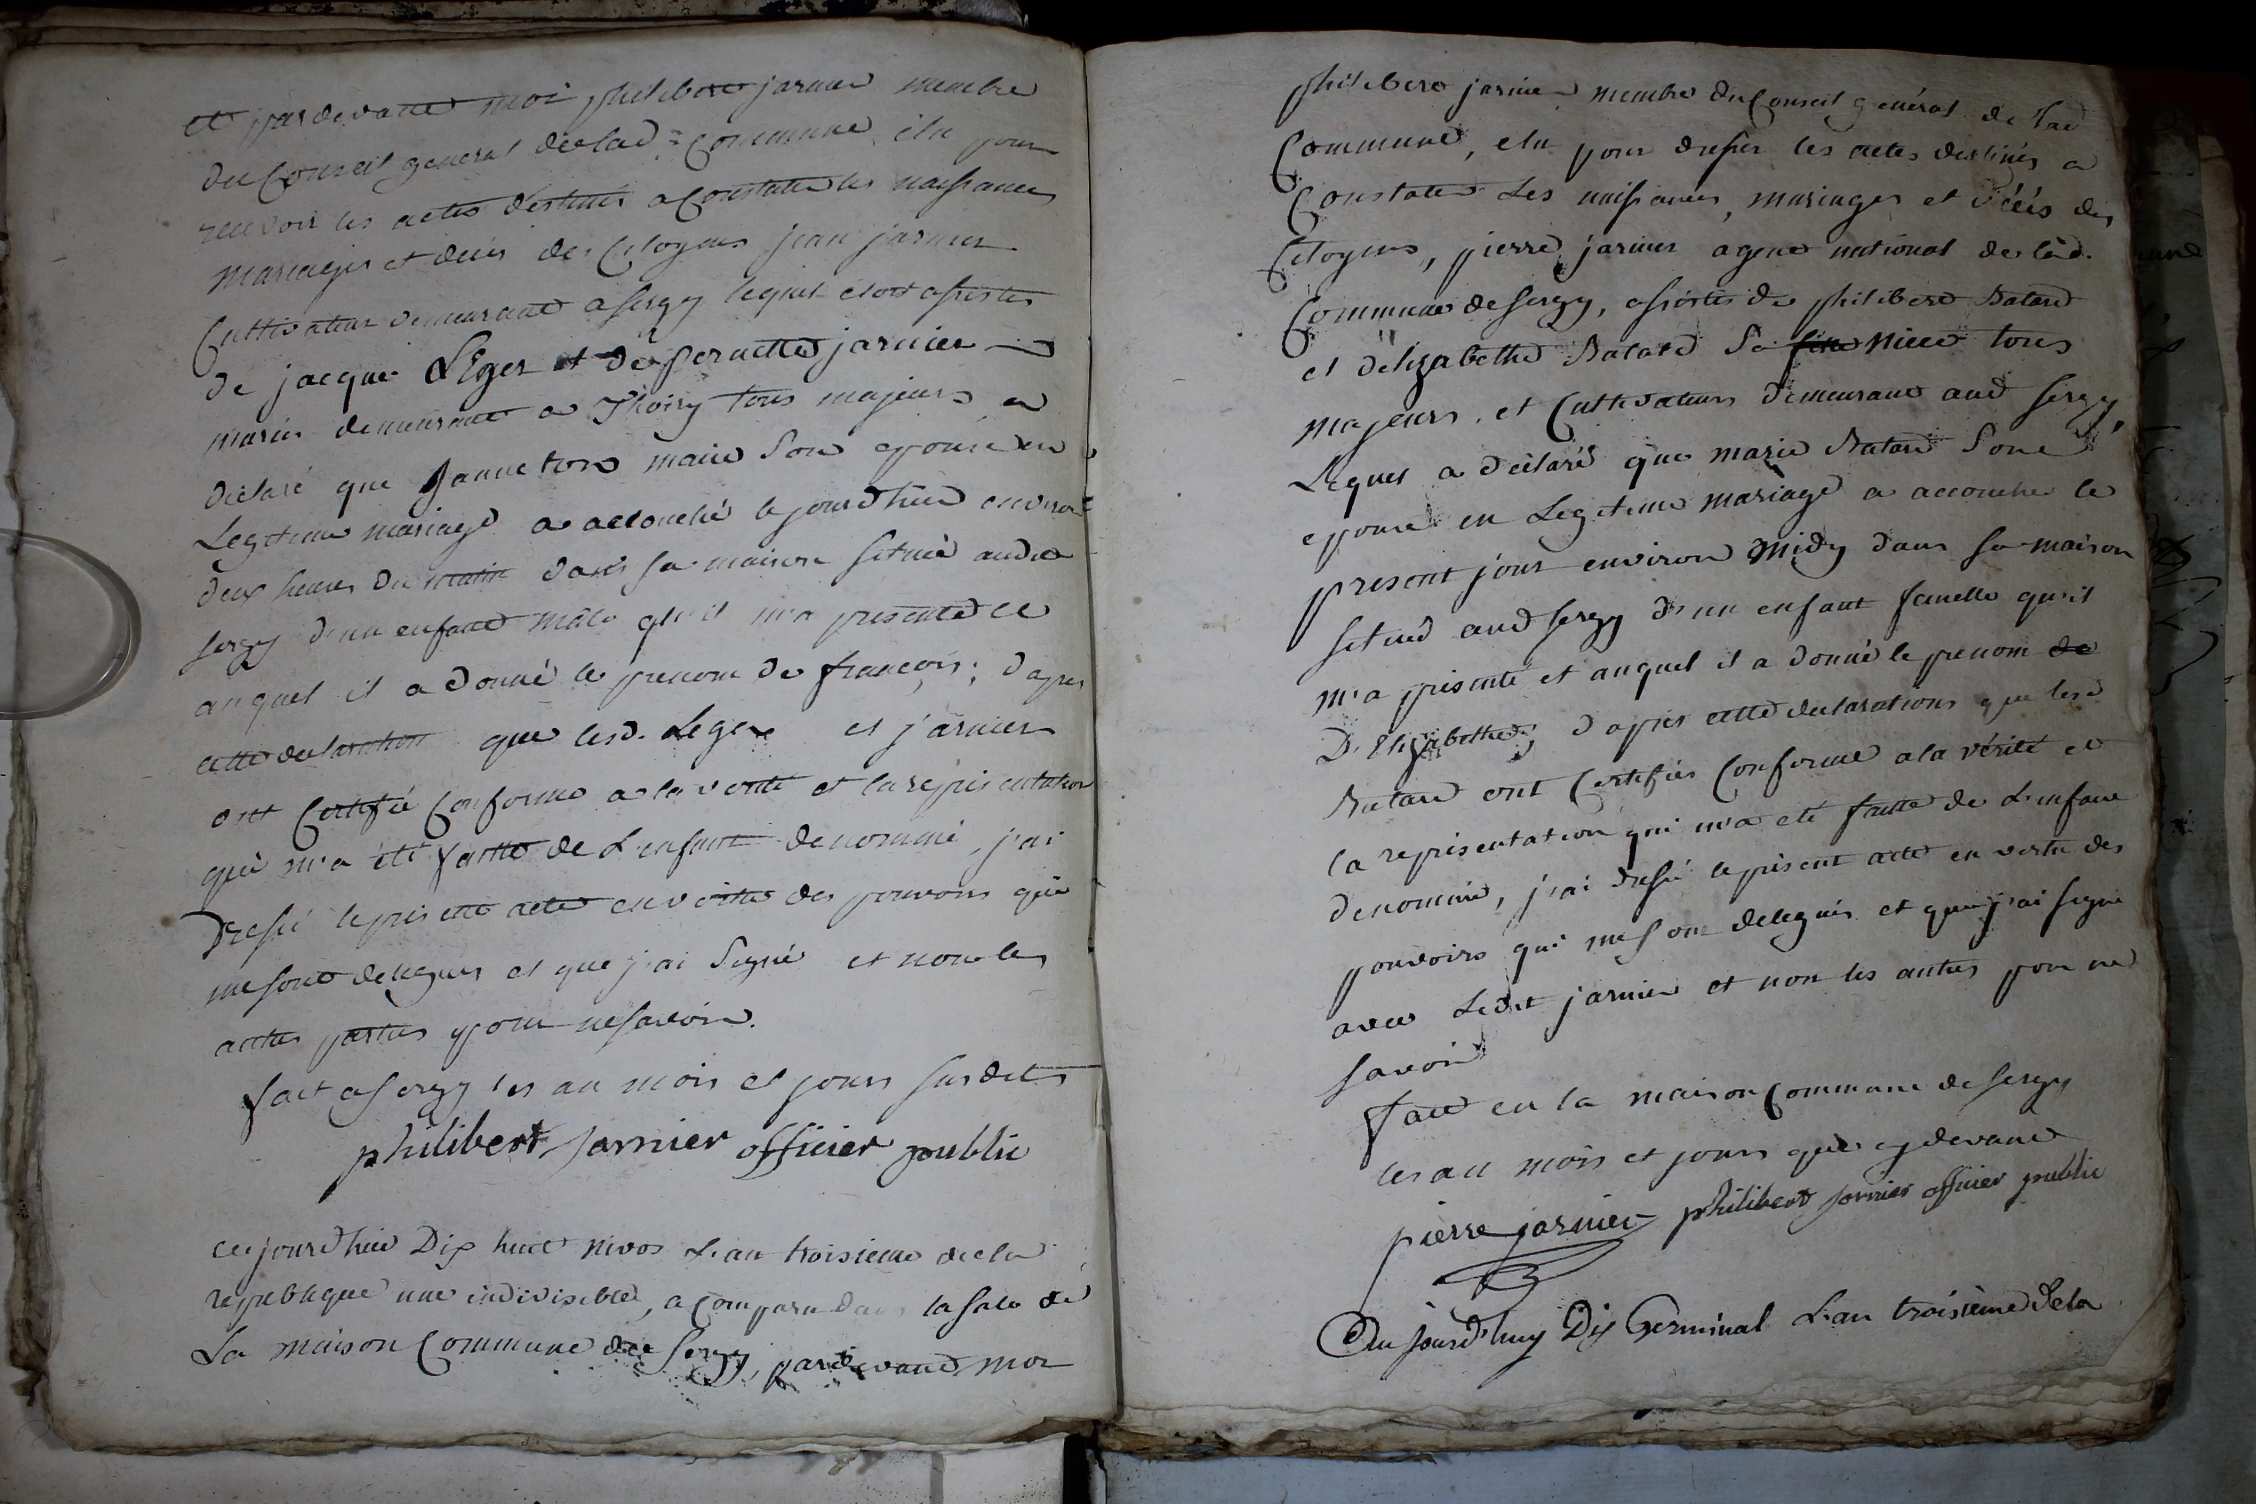 et pardevant moi philibert jarnier membre
du Conseil general de lad: Commune, élu pour
recevoir les actes destinés a Constater les naissances
mariages et decés des Citoyens jean jarnier
Cultivateur demeurant a sergy lequel etoit assistes
de jacque LEger et de pernette jarnier
mariés demeurant a Thoiry tous majeurs a
déclaré que janneton marie Son epouse en
Legitime mariage a accouché le jourdhui environ
deux heures du matin dans sa maison située audit
sergy d'un enfant mâle qu'il m'a presenté et
auquel il a donné le prenom de françois; d'apres
cette declaration que lesd. Leger et jarnier
ont Certifié Conforme a la verité et la représentation
qui m'a été faitte de L'enfant denommé, j'ai
Dressé le présent acte en vertu des pouvoirs qui
me sont delegués et que j'ai Signé et non les
autres parties pour ne savoir.
fait a sergy les an mois et jours susdits
philibert jarnier officier public
cejourdhui Dix huit nivos L'an troisieme de la
republique une indivisible, a Comparu dans la sale de
La maison Commune de Sergy, pardevant moi
philibert jarnier membre du Conseil général de lad
Commune, elu pour dresser les actes destinés a
Constater Les naissances, mariages et décés des
Citoyens, pierre jarnier agent national de lad.
Commune de sergy, assistés de philibert Batard
et delizabethe Batard Sa fille niece tous
majeurs, et Cultivateurs demeurant aud sergy,
Lequel a déclaré que marie Batard Son
epouse en Legitime mariage a accouché le
present jour environ midy dans sa maison
située aud sergy d'un enfant femelle qu'il
m'a présenté et auquel il a donné le prenom de
D'Elizabethe; d'apres cette declarations que lesd
Batard ont Certifiés Conforme a la vérité et
la représentation qui m'a eté faitte de L'enfant
denommé, j'ai dressé le présent acte en vertu des
pouvoirs qui me sont delegués et que j'ai signé
avec Ledit jarnier et non les autres pour ne
savoir
fait en la maison Commune de sergy
les an mois et jours que cy devant
pierre jarnier philibert jarnier officier public
Aujourd'huy Dix Germinal L'an troisième de la